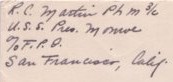 R.C. Martin Ph M 3/c
U.S.S. Pres. Monroe
% F.P.O.
San Francisco, Calif.